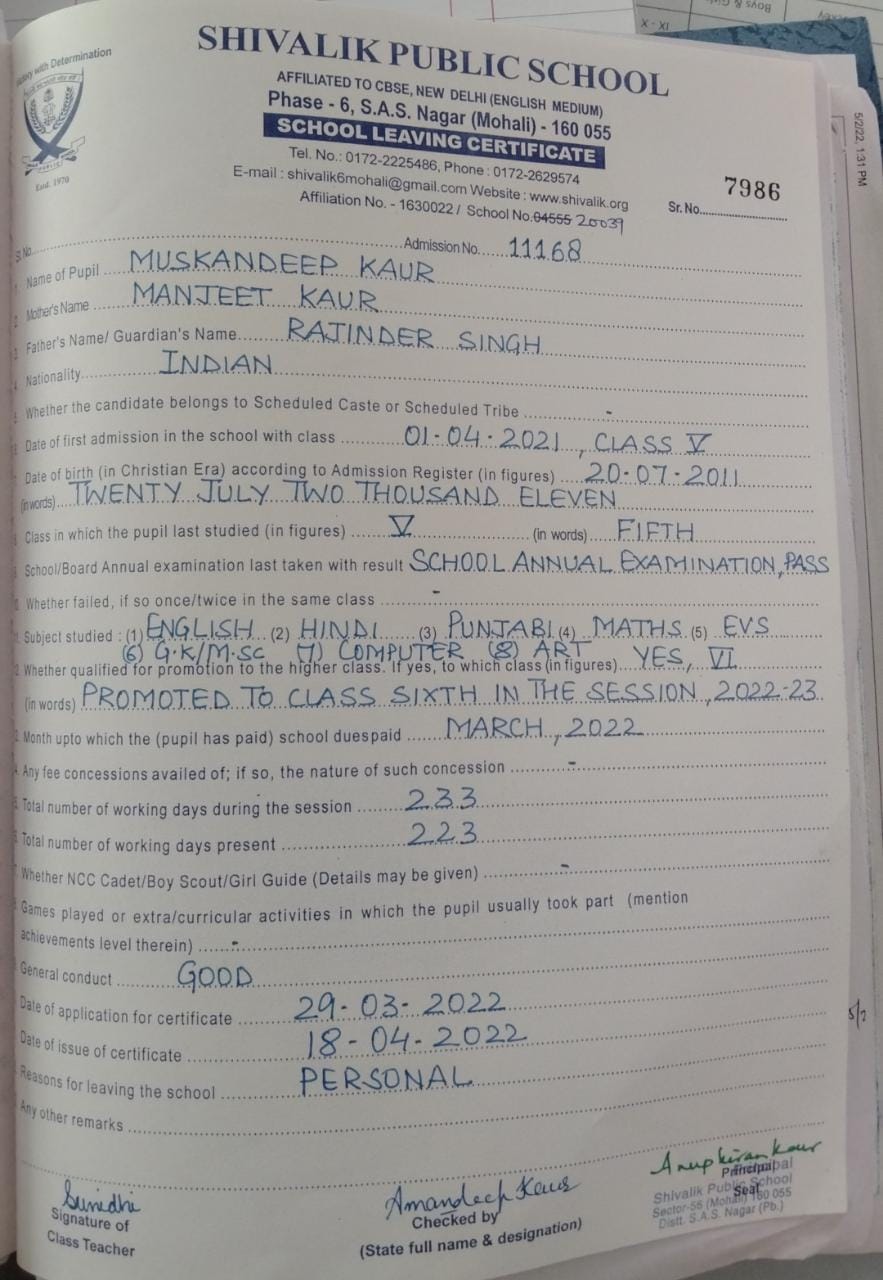 Boys & G
X - XI
5/2/22, 1:31 PM
Victory with Determination
PUBLIC
Estd. 1970
SHIVALIK PUBLIC SCHOOL
AFFILIATED TO CBSE, NEW DELHI (ENGLISH MEDIUM)
Phase - 6, S.A.S. Nagar (Mohali) - 160 055
SCHOOL LEAVING CERTIFICATE
Tel. No.: 0172-2225486, Phone : 0172-2629574
E-mail : shivalik6mohali@gmail.com Website : www.shivalik.org
Affiliation No. - 1630022 / School No. 04555 20039
Sr. No. 7986
Sl.No. Admission No. 11168
1 Name of Pupil MUSKANDEEP KAUR
2 Mother's Name MANJEET KAUR
3 Father's Name/ Guardian's Name RAJINDER SINGH
4 Nationality INDIAN
5 Whether the candidate belongs to Scheduled Caste or Scheduled Tribe -
6 Date of first admission in the school with class 01-04-2021, CLASS V
Date of birth (in Christian Era) according to Admission Register (in figures) 20-07-2011
(in words) TWENTY JULY TWO THOUSAND ELEVEN
Class in which the pupil last studied (in figures) V (in words) FIFTH
School/Board Annual examination last taken with result SCHOOL ANNUAL EXAMINATION, PASS
Whether failed, if so once/twice in the same class -
Subject studied : (1) ENGLISH (2) HINDI (3) PUNJABI (4) MATHS (5) EVS
(6) G.K/M.SC (7) COMPUTER (8) ART
Whether qualified for promotion to the higher class. If yes, to which class (in figures) YES, VI
(in words) PROMOTED TO CLASS SIXTH IN THE SESSION, 2022-23
Month upto which the (pupil has paid) school duespaid MARCH, 2022
Any fee concessions availed of; if so, the nature of such concession -
Total number of working days during the session 233
Total number of working days present 223
Whether NCC Cadet/Boy Scout/Girl Guide (Details may be given) -
Games played or extra/curricular activities in which the pupil usually took part (mention
achievements level therein) -
General conduct GOOD
Date of application for certificate 29-03-2022
Date of issue of certificate 18-04-2022
Reasons for leaving the school PERSONAL
Any other remarks
Sunidhi
Signature of
Class Teacher
Amandeep Kaur
Checked by
(State full name & designation)
Anupkiran Kaur
Principal
Seal
Principal
Shivalik Public School
Sector-56 (Mohali) 160 055
Distt. S.A.S. Nagar (Pb.)